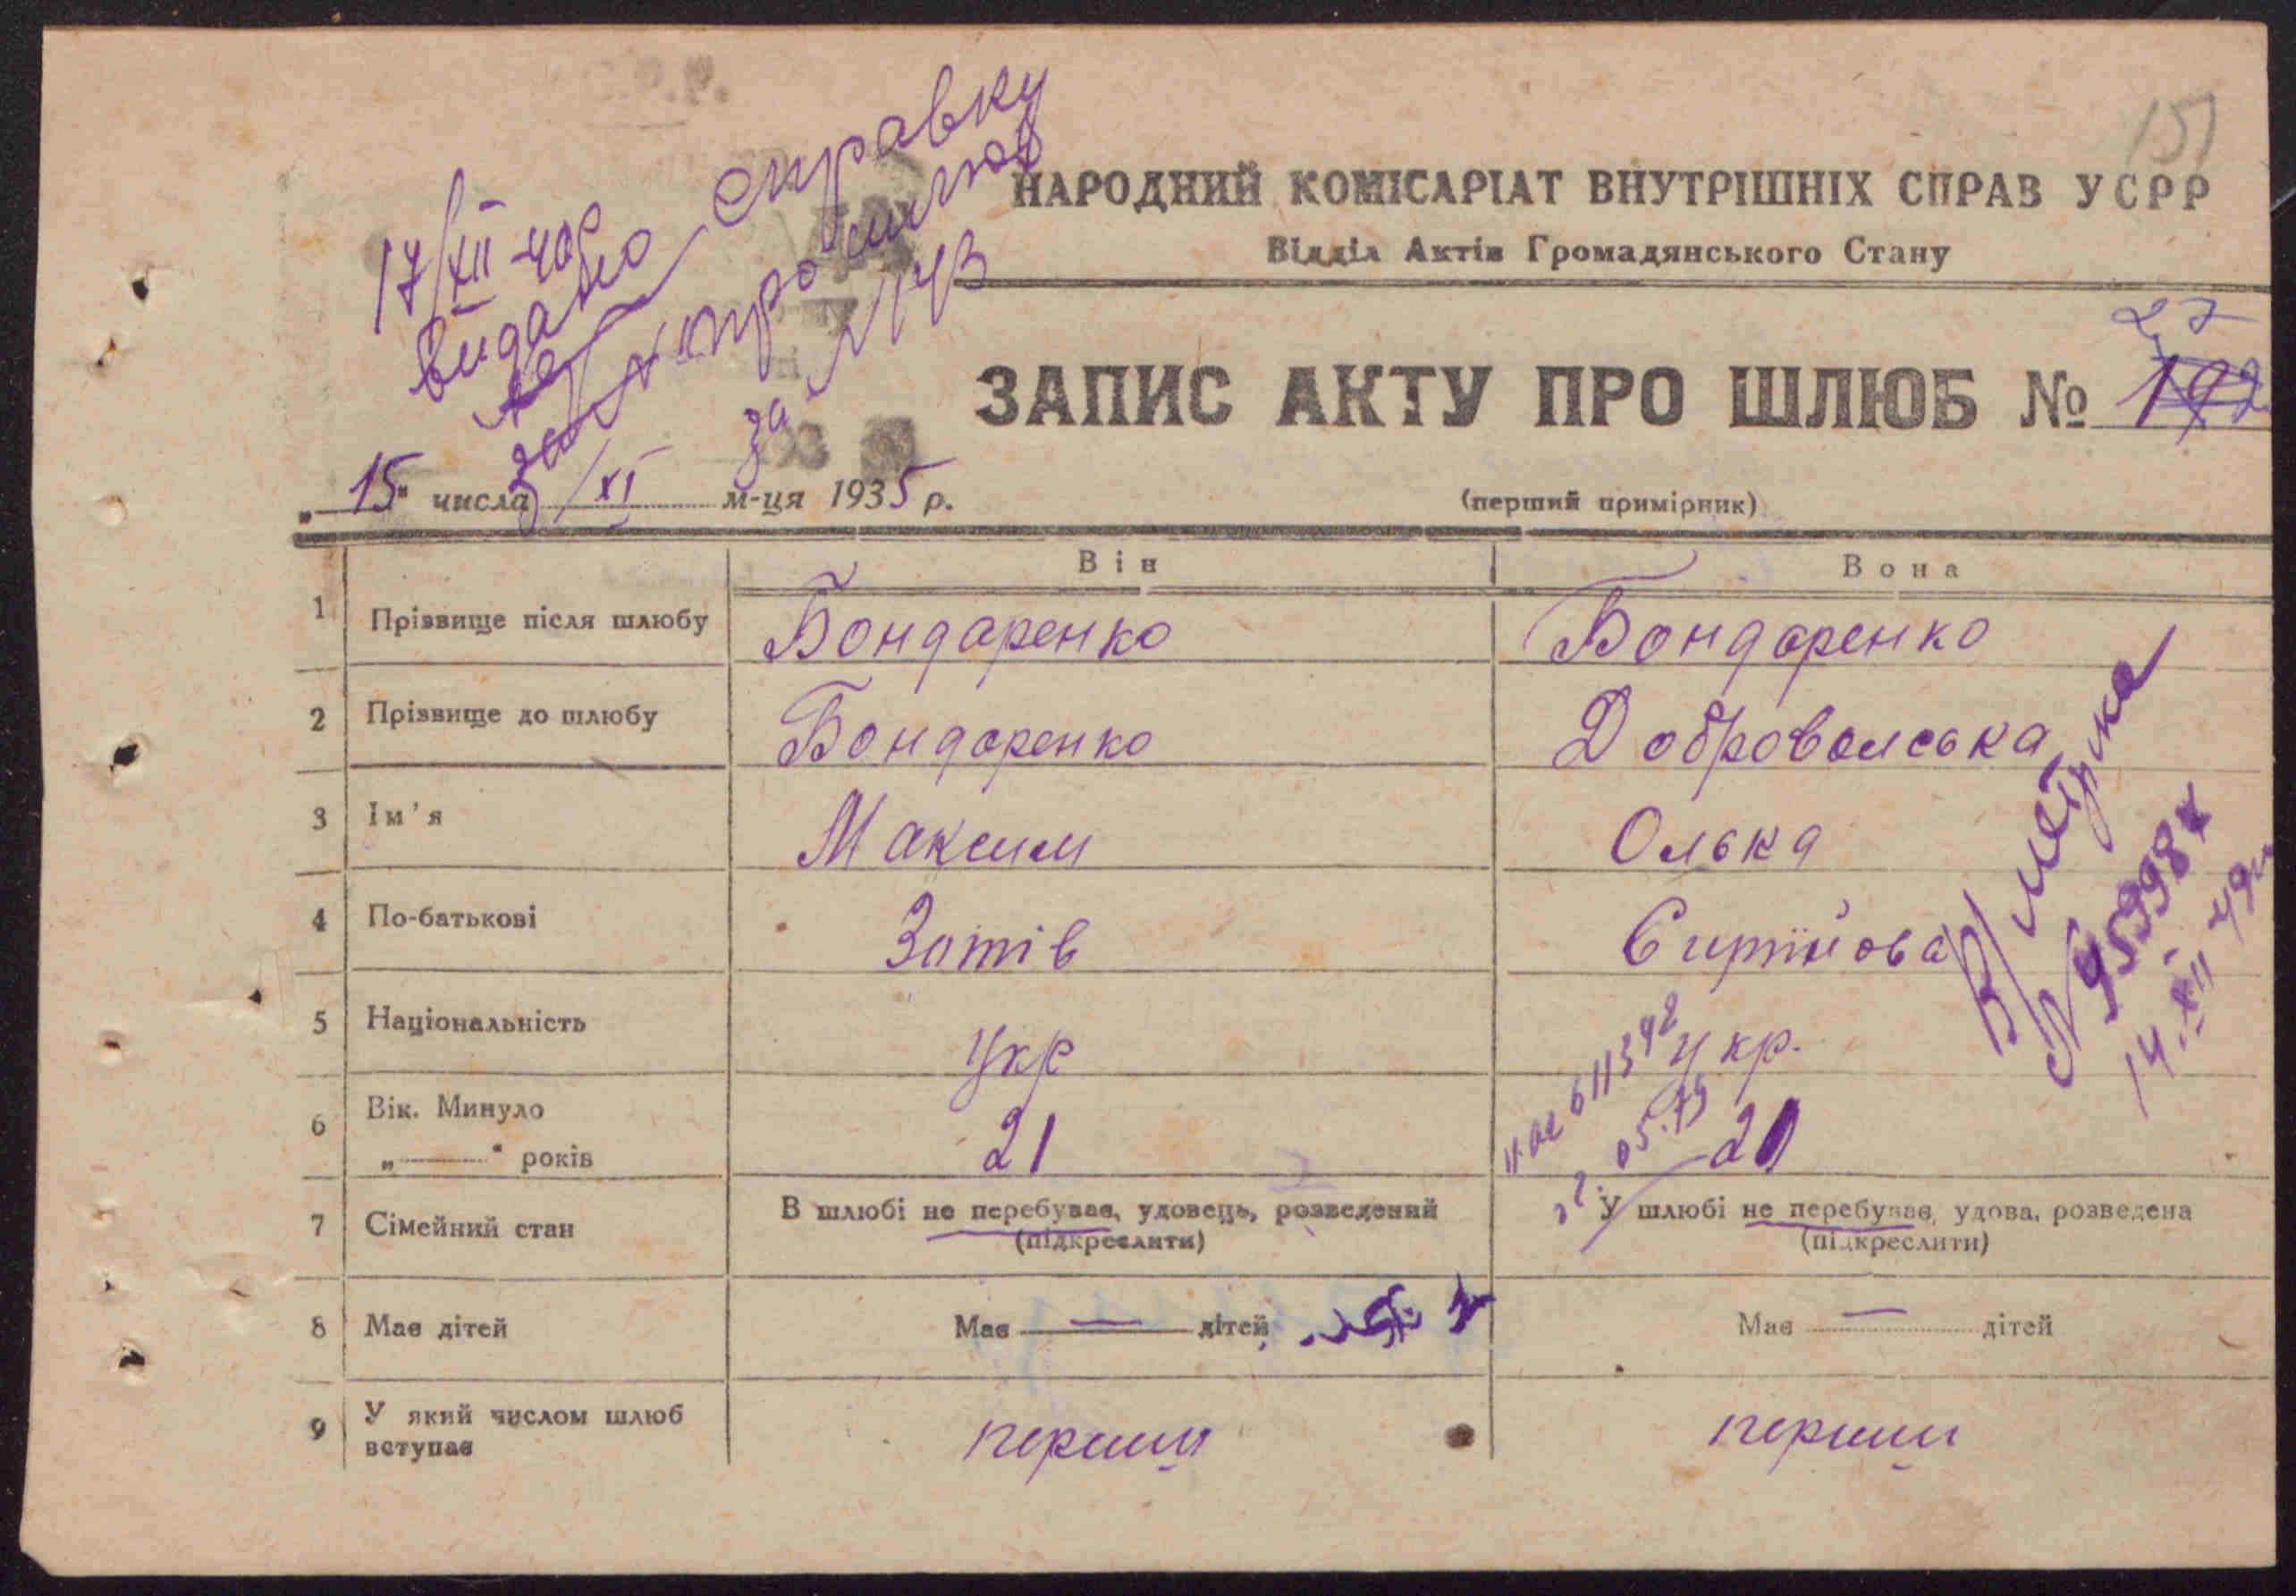 151
НАРОДНИЙ КОМІСАРІАТ ВНУТРІШНІХ СПРАВ УСРР
Відділ Актів Громадянського Стану
17/XII-40р
видано справку
про шлюб
за № 43
ЗАПИС АКТУ ПРО ШЛЮБ № 192
27
„15" числа XI м-ця 1935 р.
(перший примірник)
Він Вона
1 Прізвище після шлюбу Бондаренко Бондаренко
2 Прізвище до шлюбу Бондаренко Добровольська
3 Ім'я Максим Олька
4 По-батькові
5 Національність Укр Укр.
6 Вік. Минуло
„ " років 21 20
7 Сімейний стан В шлюбі не перебуває, удовець, розведений У шлюбі не перебуває, удова, розведена
(підкреслити) (підкреслити)
8 Має дітей Має — дітей Має — дітей
9 У який числом шлюб
вступає перший перший
611392
05.79
В/метрика
14.XII 49р